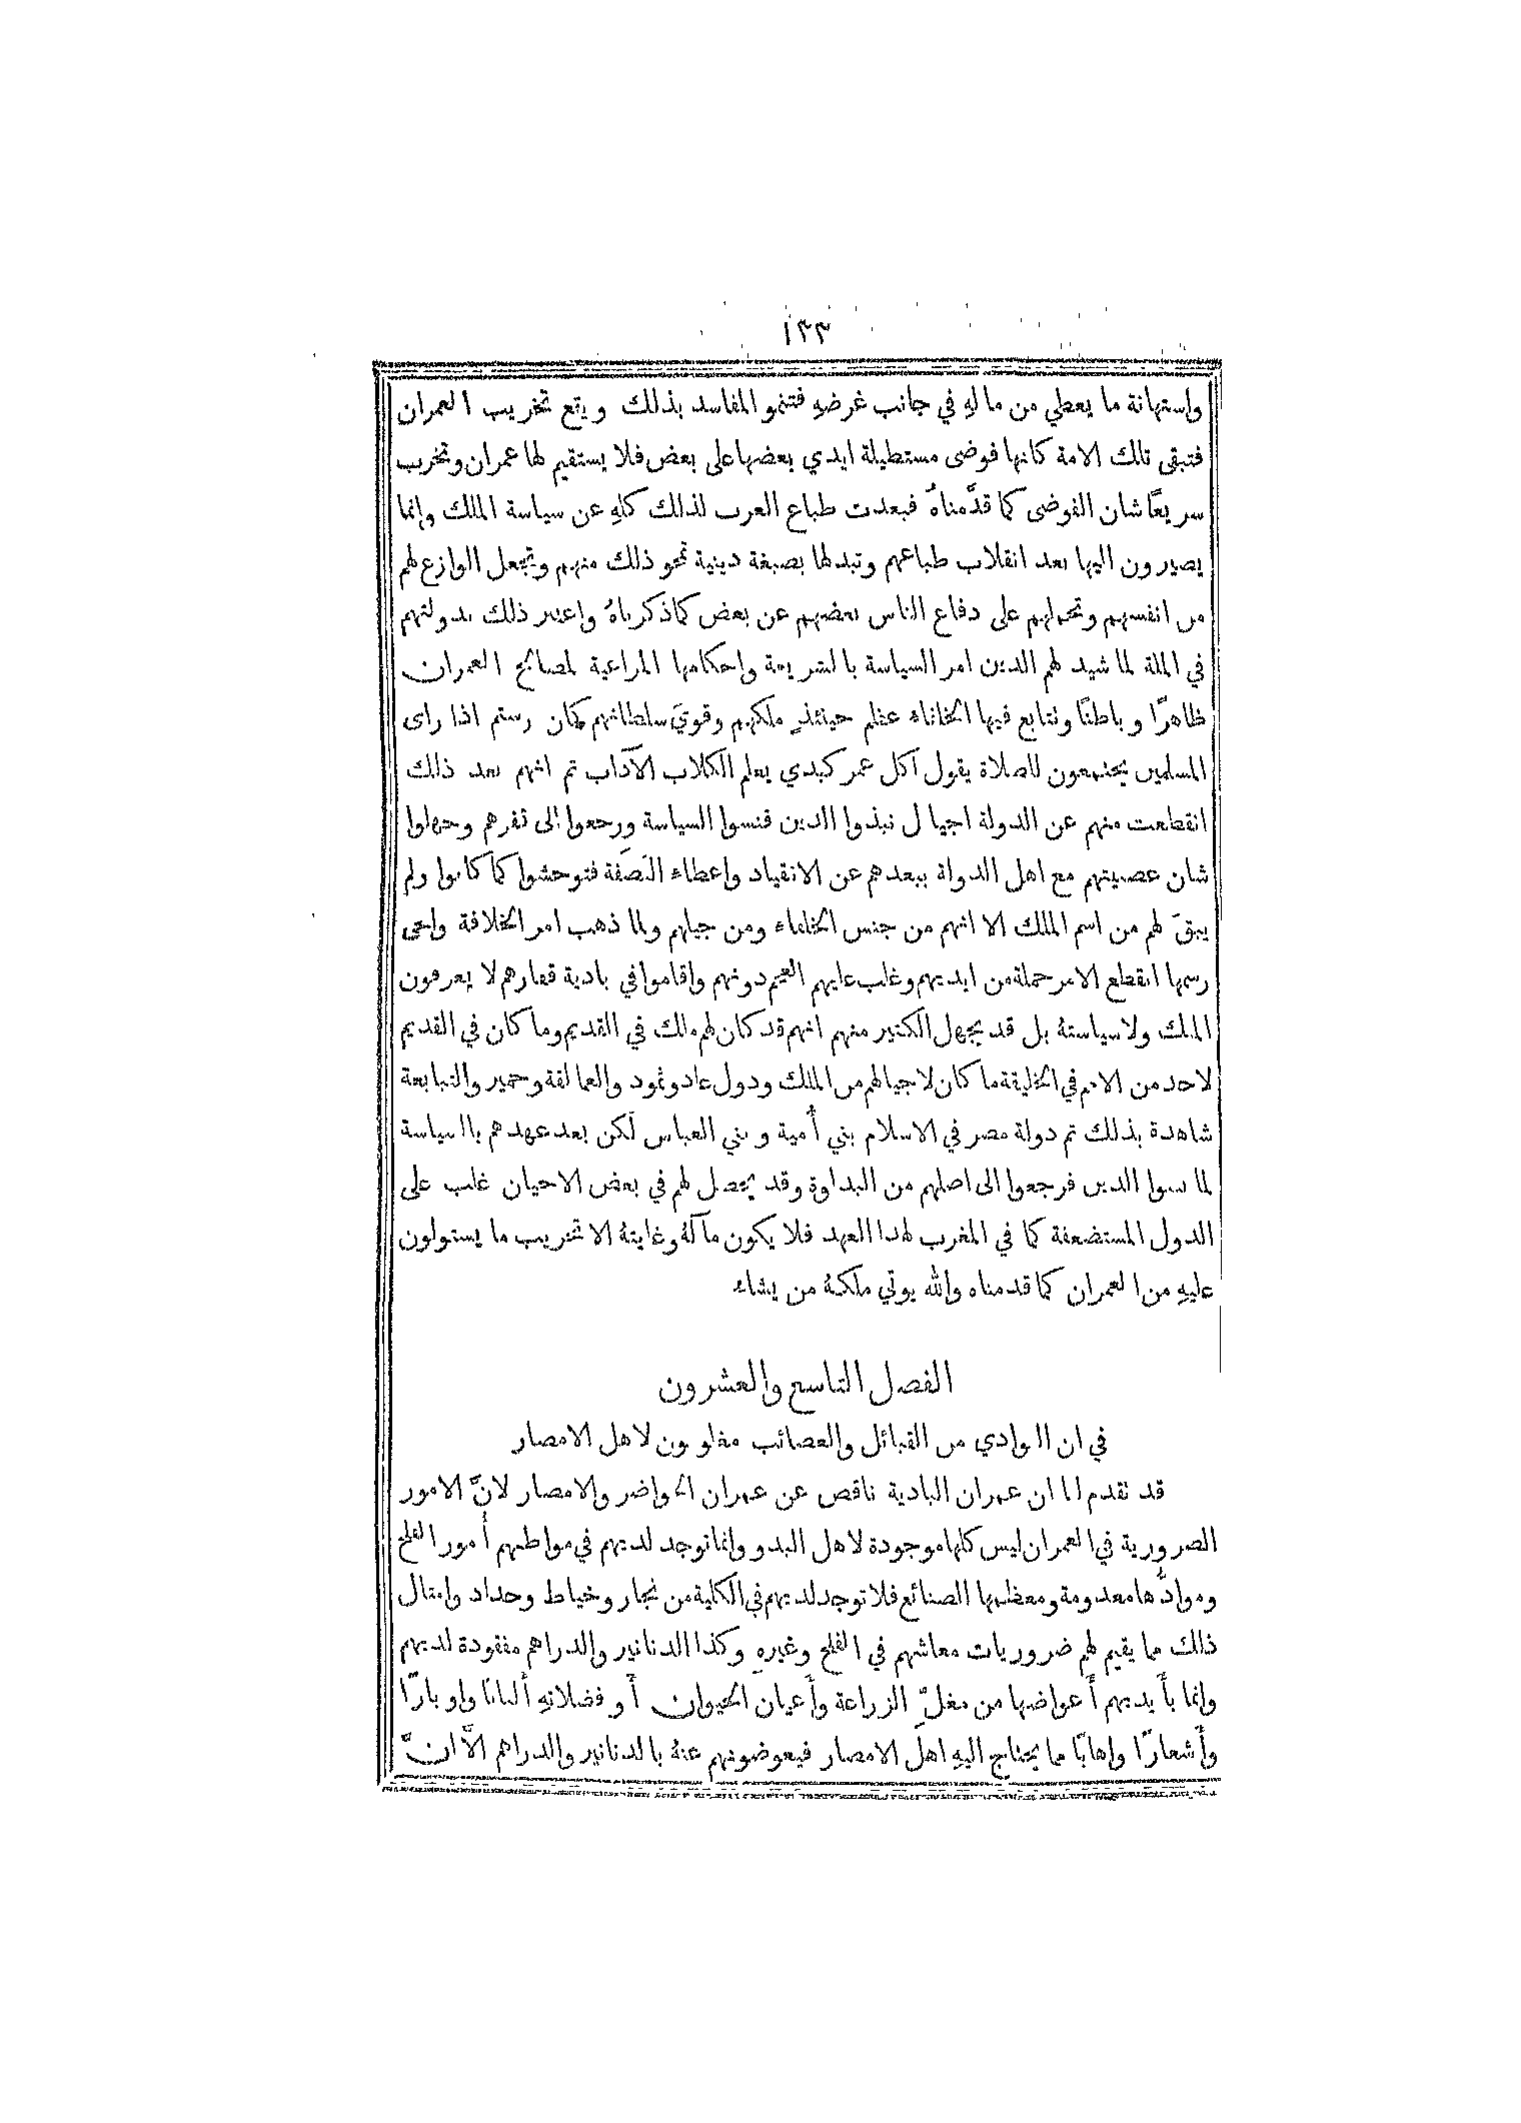 ١٣٣
واستهانة ما يعطي من مالهِ في جانب غرضهِ فتنمو المفاسد بذلك ويقع تخريب العمران
فتبقى تلك الامة كانها فوضى مستطيلة ايدي بعضها على بعض فلا يستقيم لها عمران وتخرب
سريعًا شان الفوضى كما قدَّمناهُ فبعدت طباع العرب لذلك كلهِ عن سياسة الملك وانما
يصيرون اليها بعد انقلاب طباعهم وتبدلها بصبغة دينية تمحو ذلك منهم وتجعل الوازع لهم
من انفسهم وتحملهم على دفاع الناس بعضهم عن بعض كما ذكرناهُ واعتبر ذلك بدولتهم
في الملة لما شيد لهم الدين امر السياسة بالشريعة واحكامها المراعية لمصالح العمران
ظاهرًا وباطنًا وتتابع فيها الخلفاء عظم حينئذٍ ملكهم وقويَ سلطانهم كان رستم اذا راى
المسلمين يجتمعون للصلاة يقول اكل عمر كبدي يعلم الكلاب الآداب ثم انهم بعد ذلك
انقطعت منهم عن الدولة اجيال نبذوا الدين فنسوا السياسة ورجعوا الى قفرهم وجهلوا
شان عصبيتهم مع اهل الدولة ببعدهم عن الانقياد واعطاء النَصَفة فتوحشوا كما كانوا ولم
يبقَ لهم من اسم الملك الا انهم من جنس الخلفاء ومن جيلهم ولما ذهب امر الخلافة وامحى
رسمها انقطع الامر جملة من ايديهم وغلب عليهم العجم دونهم واقاموا في بادية قفارهم لا يعرفون
الملك ولا سياستهُ بل قد يجهل الكثير منهم انهم قد كان لهم ملك في القديم وما كان في القديم
لاحد من الامم في الخليقة ما كان لاجيالهم من الملك ودول عاد وثمود والعمالقة وحمير والتبابعة
شاهدة بذلك ثم دولة مضر في الاسلام بني أُمية وبني العباس لكن بعد عهدهم بالسياسة
لما نسوا الدين فرجعوا الى اصلهم من البداوة وقد يحصل لهم في بعض الاحيان غلب على
الدول المستضعفة كما في المغرب لهذا العهد فلا يكون مآلهُ وغايتهُ الا تخريب ما يستولون
عليهِ من العمران كما قدمناه والله يوتي ملكهُ من يشاء
الفصل التاسع والعشرون
في ان البوادي من القبائل والعصائب مغلوبون لاهل الامصار
قد تقدم لنا ان عمران البادية ناقص عن عمران الحواضر والامصار لانَّ الامور
الضرورية في العمران ليس كلها موجودة لاهل البدو وانما توجد لديهم في مواطنهم أُمور الفلح
وموادُّها معدومة ومعظمها الصنائع فلا توجد لديهم في الكلية من نجار وخياط وحداد وامثال
ذلك مما يقيم لهم ضروريات معاشهم في الفلح وغيرهِ وكذا الدنانير والدراهم مفقودة لديهم
وانما بأيديهم أَعواضها من مغلّ الزراعة وأَعيان الحيوان أَو فضلاتهِ أَلبانًا واوبارًا
وأَشعارًا واهابًا مما يحتاج اليهِ اهل الامصار فيعوضونهم عنهُ بالدنانير والدراهم الَّا انَّ